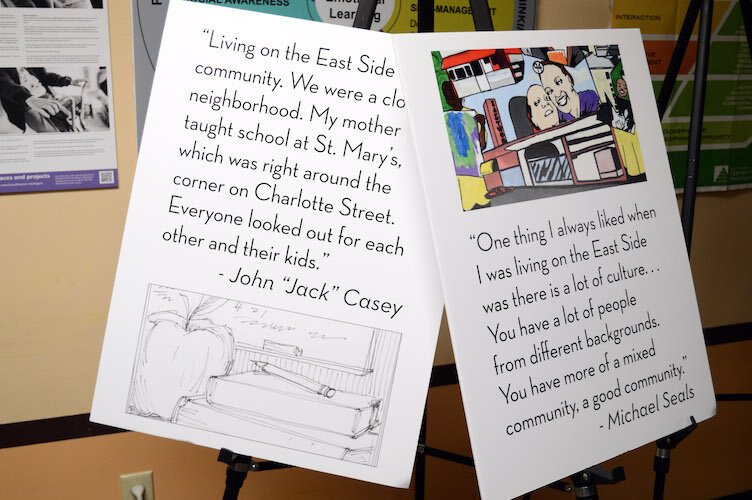 SOCIAL AWARENESS
Emotional
Learning
SELF-MANAGEMENT
INTERACTION
aces and projects
“Living on the East Side
community. We were a clo
neighborhood. My mother
taught school at St. Mary’s,
which was right around the
corner on Charlotte Street.
Everyone looked out for each
other and their kids.”
- John “Jack” Casey
“One thing I always liked when
I was living on the East Side
was there is a lot of culture...
You have a lot of people
from different backgrounds.
You have more of a mixed
community, a good community.”
- Michael Seals